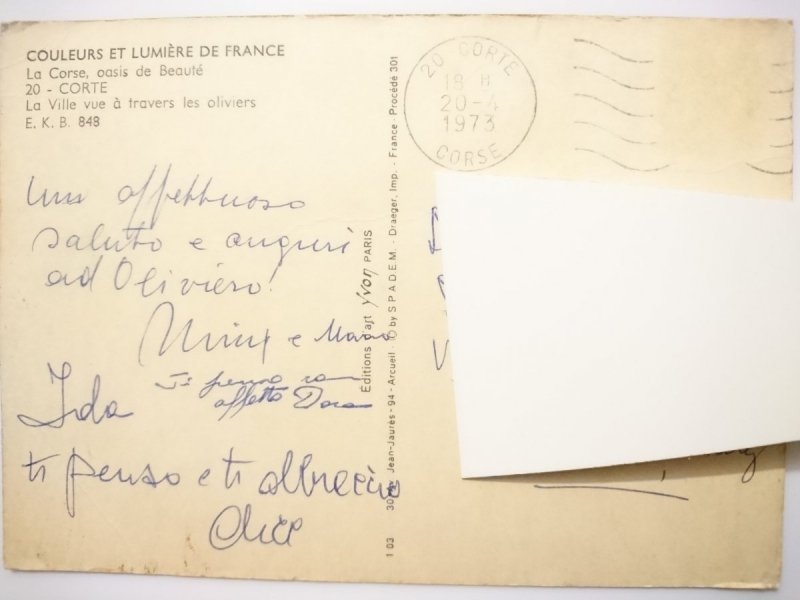 COULEURS ET LUMIÈRE DE FRANCE
La Corse, oasis de Beauté
20 - CORTE
La Ville vue à travers les oliviers
E. K. B. 848
20 CORTE
18 H
20-4
1973
CORSE
Un affettuoso
saluto e auguri
ad Oliviero!
e Mario
Ida
Ti penso con
affetto Dora
ti penso e ti abbraccio
Éditions d'art yvon PARIS
Jean-Jaurès - 94 - Arcueil - © by S P A D E M. - Draeger, Imp. - France - Procédé 301
1 03